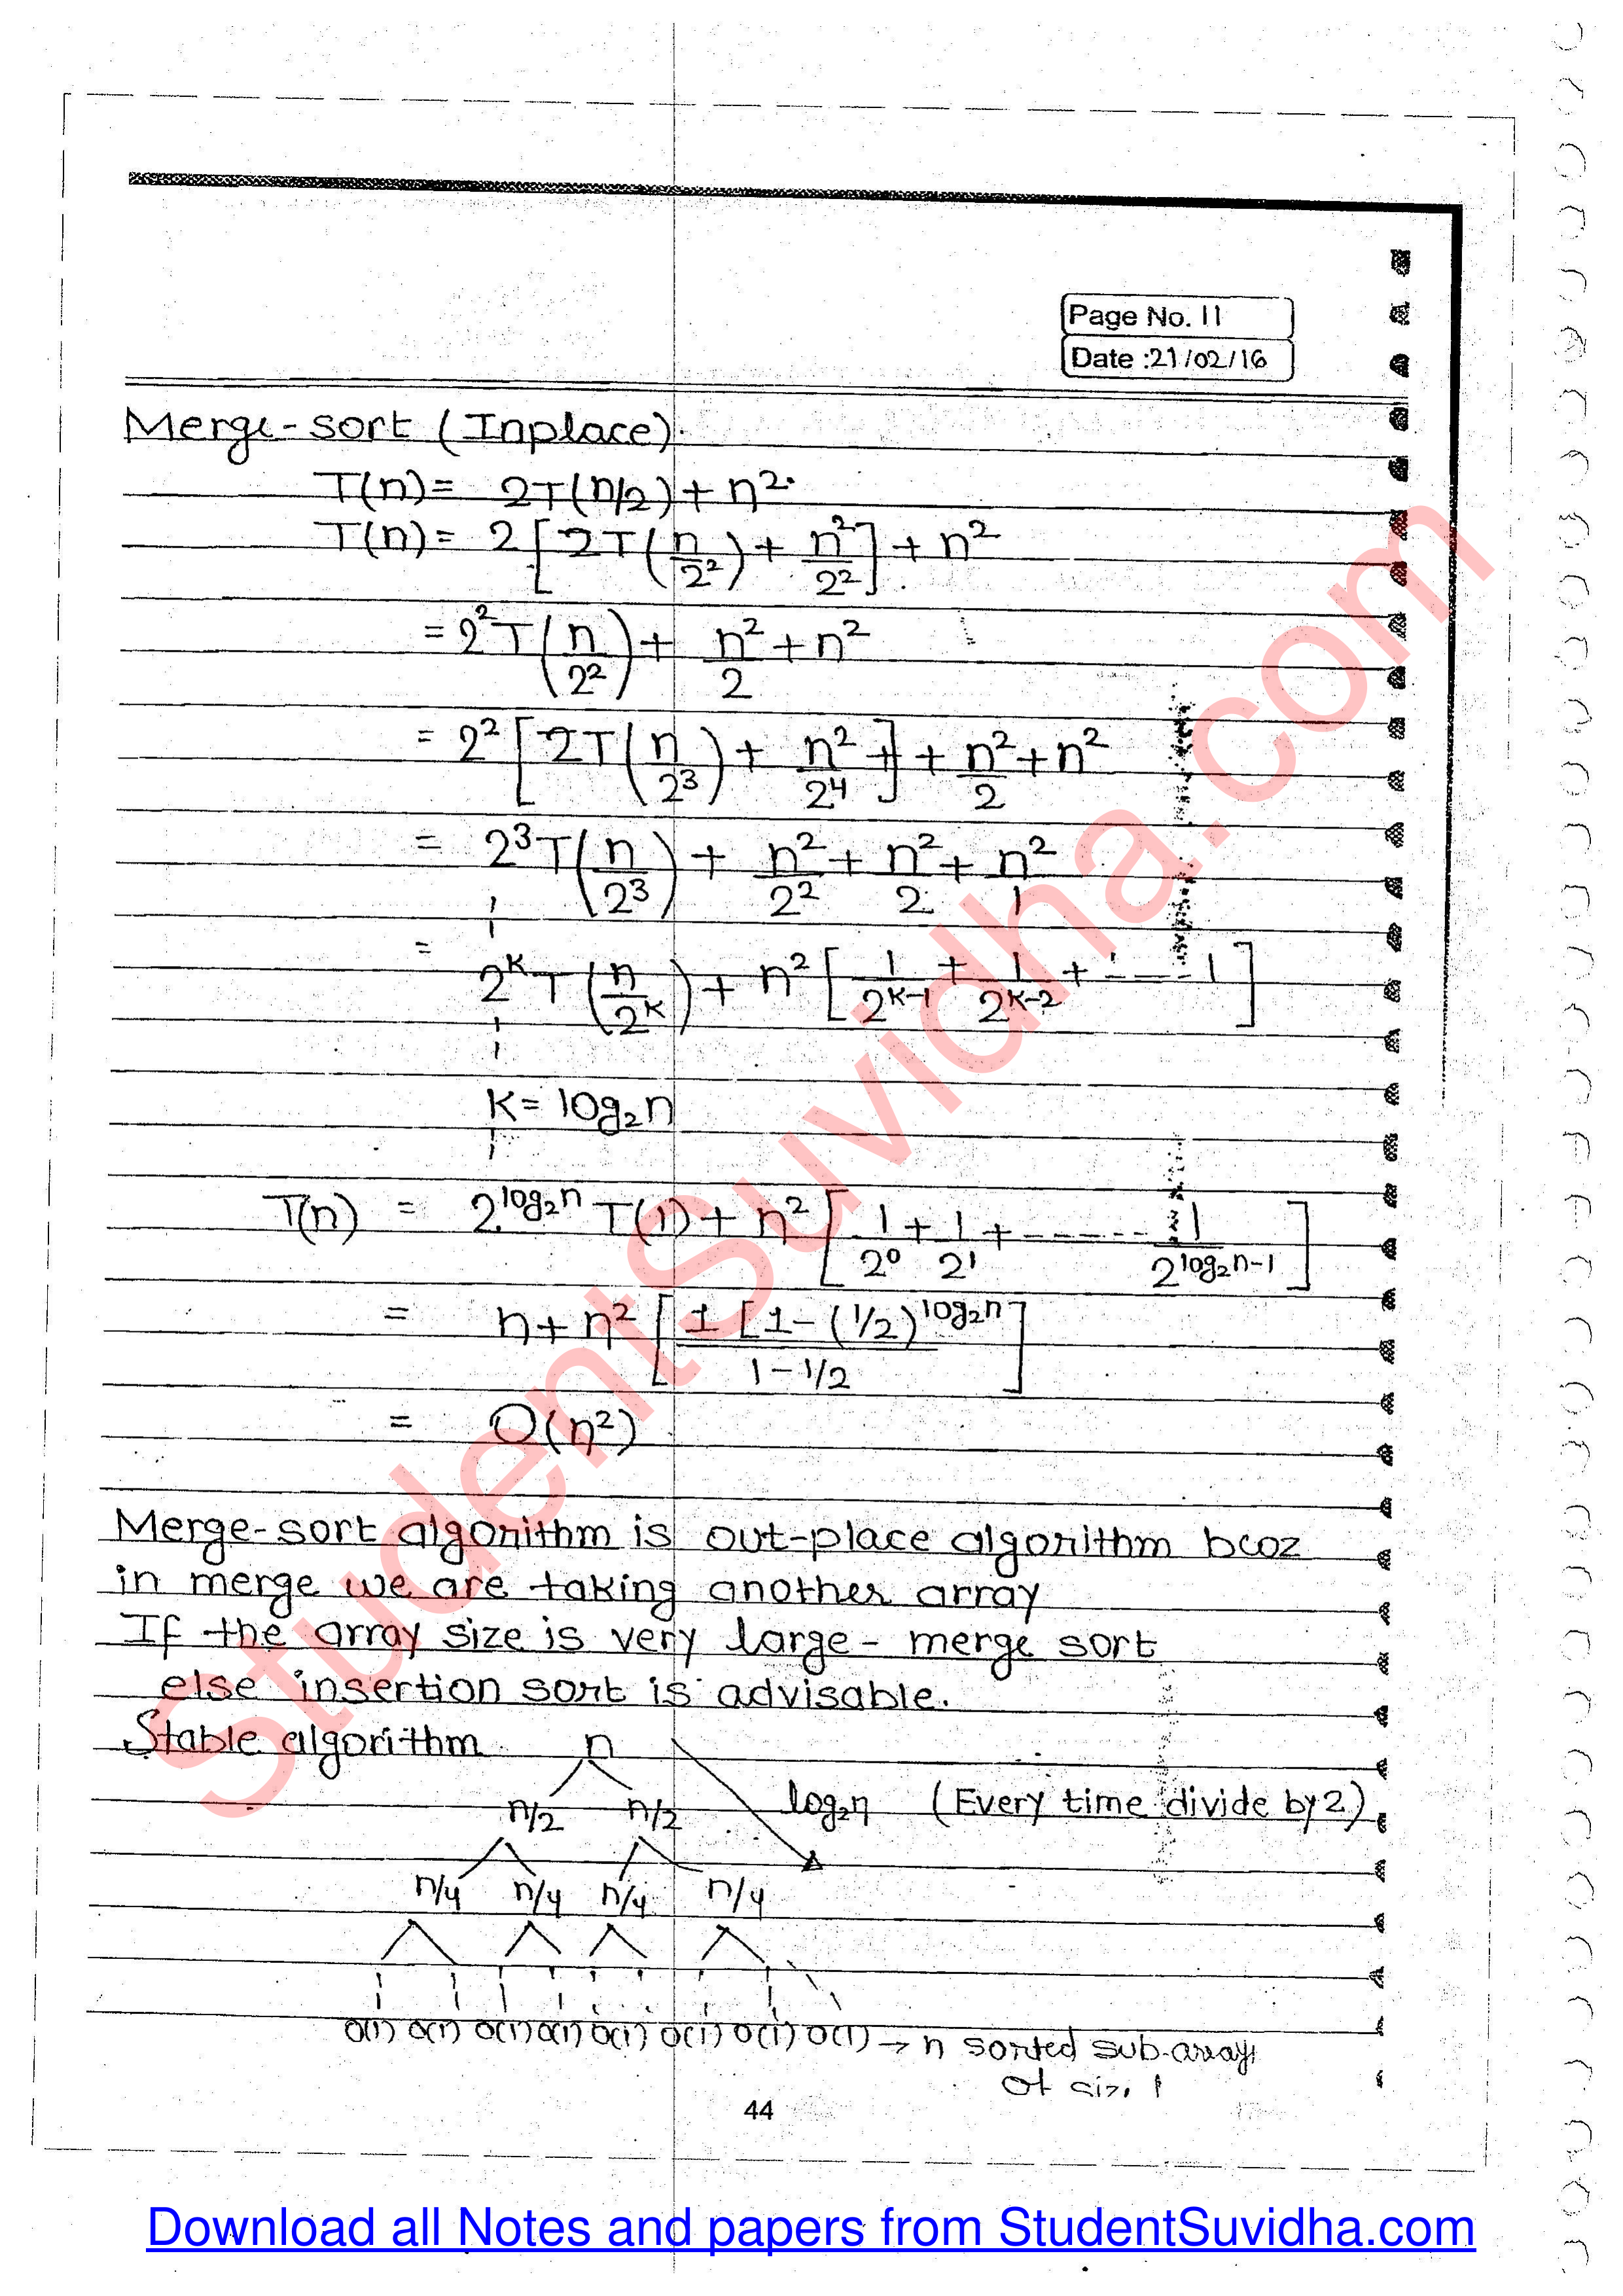 Page No. 11
Date :21/02/16
Merge-sort (Inplace).
T(n) = 2T(n/2) + n².
T(n) = 2 [ 2T(n/2²) + n²/2² ] + n²
= 2² T(n/2²) + n²/2 + n²
= 2² [ 2T(n/2³) + n²/2⁴ + ] + n²/2 + n²
= 2³ T(n/2³) + n²/2² + n²/2 + n²/1
= 2^k T(n/2^k) + n² [ 1/2^(k-1) + 1/2^(k-2) + ---- 1 ]
k = log₂n
T(n) = 2^(log₂n) T(1) + n² [ 1/2⁰ + 1/2¹ + ------ 1/2^(log₂n-1) ]
= n + n² [ 1 [1 - (1/2)^(log₂n) / 1 - 1/2 ]
= O(n²)
Merge-sort algorithm is out-place algorithm bcoz
in merge we are taking another array
If the array size is very large - merge sort
else insertion sort is advisable.
Stable algorithm n
n/2 n/2 log₂n (Every time divide by 2)
n/4 n/4 n/4 n/4
O(1) O(1) O(1) O(1) O(1) O(1) O(1) O(1) → n sorted sub-array
of size 1
44
StudentSuvidha.com
Download all Notes and papers from StudentSuvidha.com